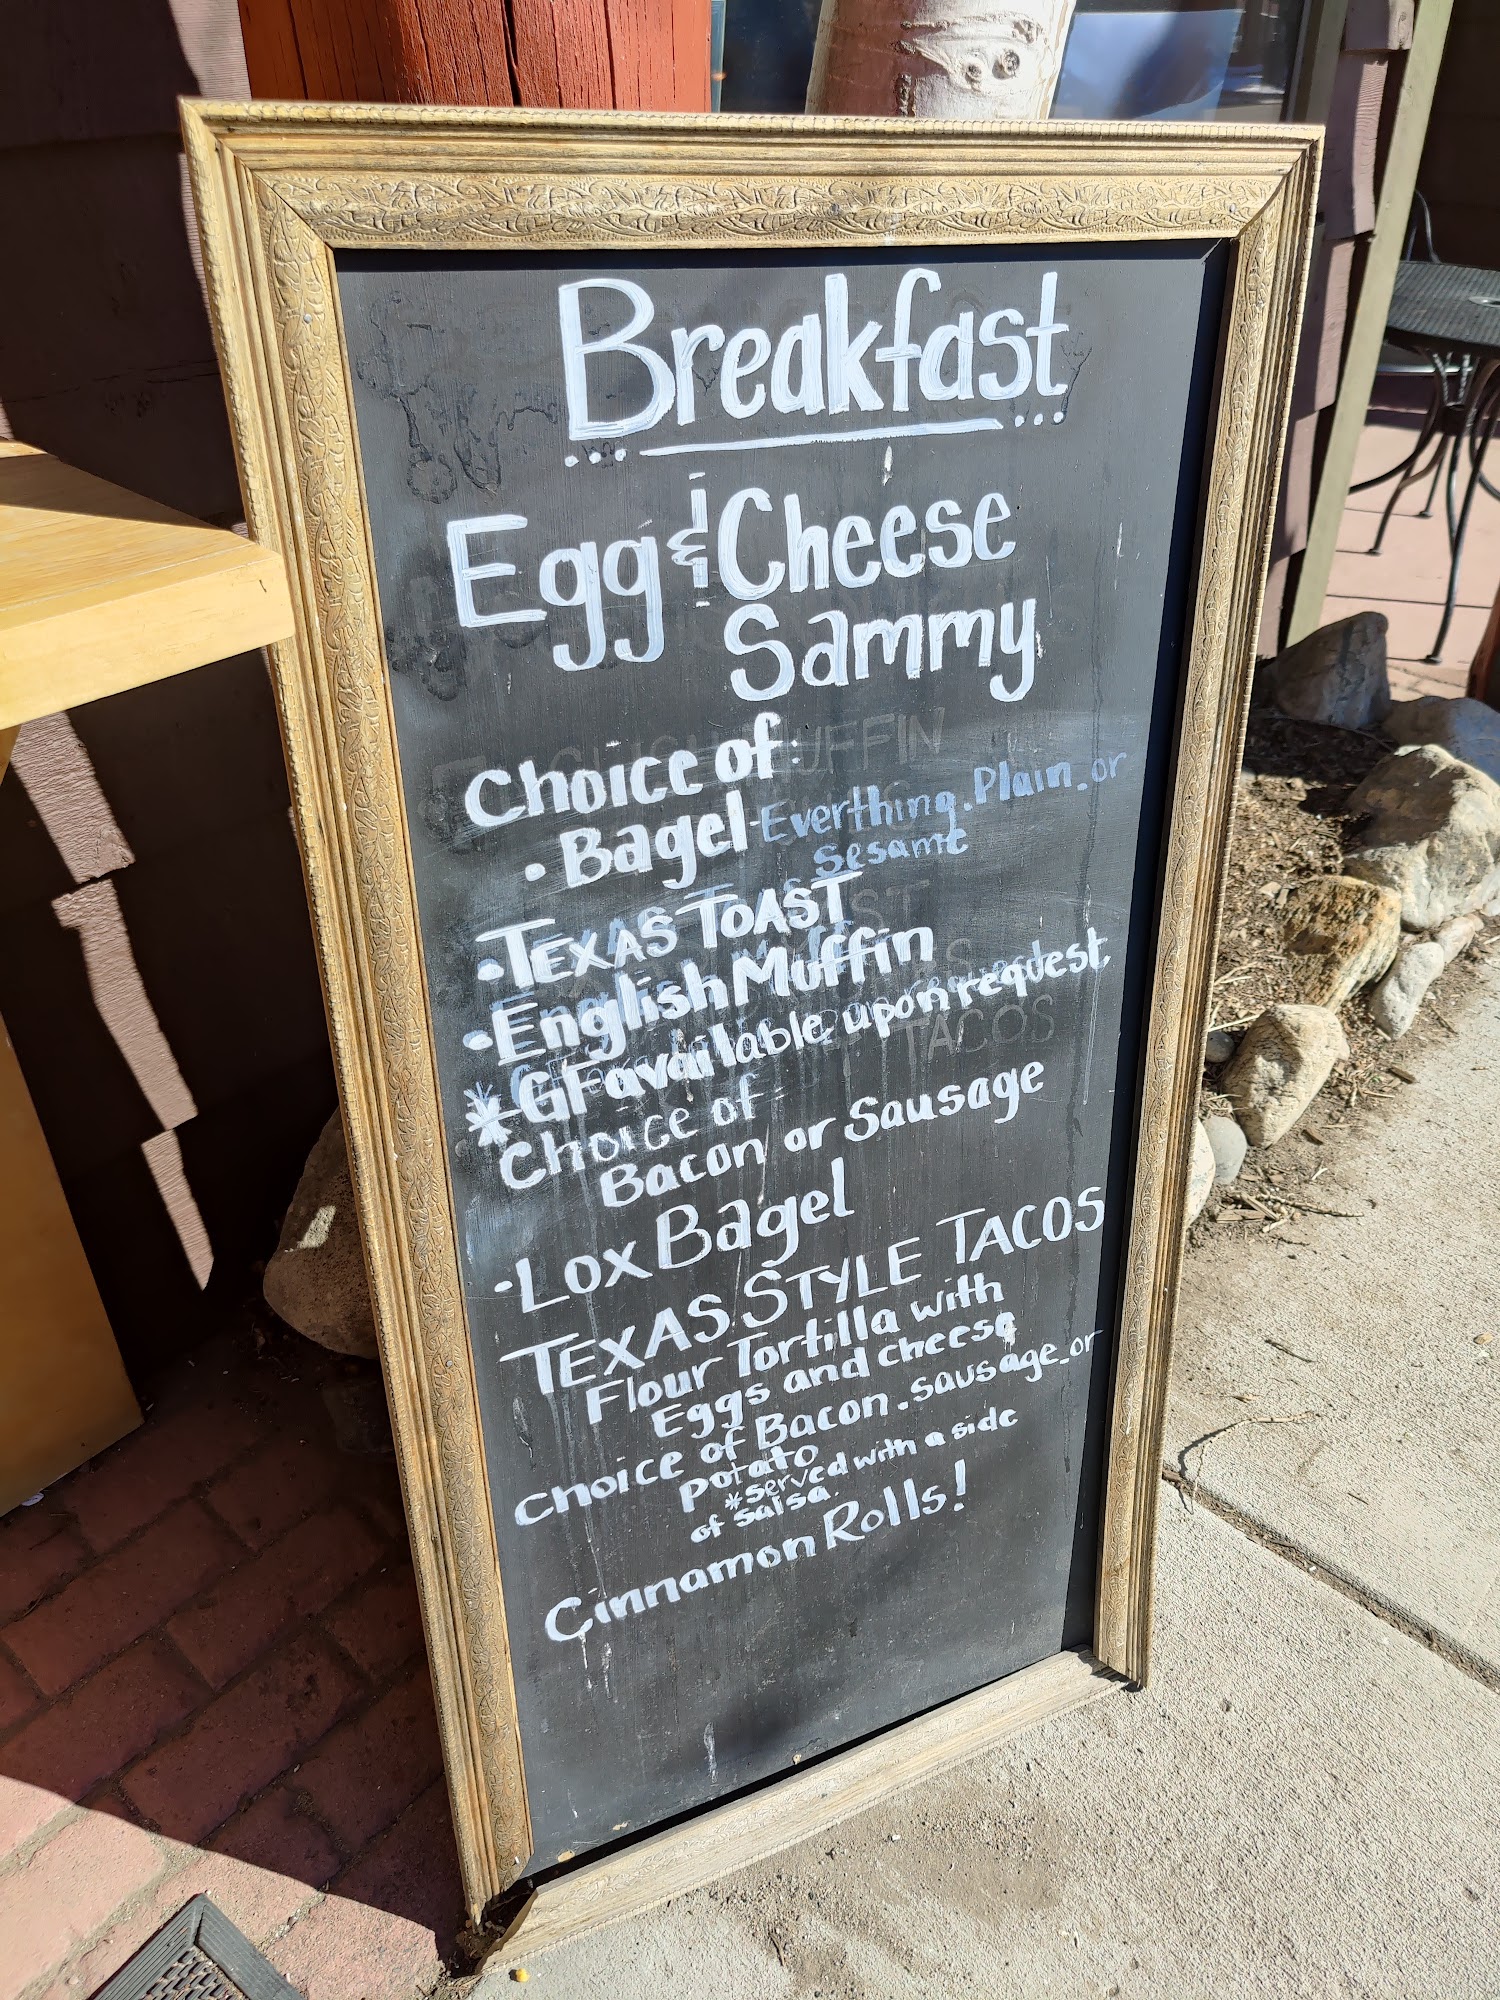 Breakfast
Egg & Cheese
Sammy
Choice of:
• Bagel - Everthing, Plain, or
Sesame
• TEXAS TOAST
• English Muffin
* GF available upon request.
Choice of =
Bacon or Sausage
• Lox Bagel
TEXAS STYLE TACOS
Flour Tortilla with
Eggs and cheese
choice of Bacon, sausage, or
potato
*served with a side
of salsa.
Cinnamon Rolls!